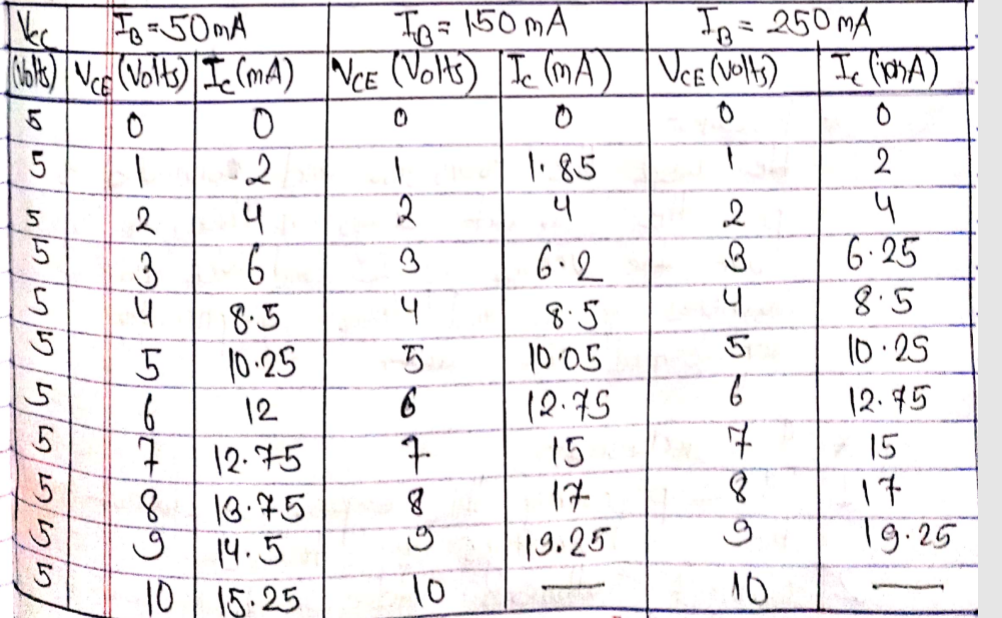 Vcc IB=50mA IB= 150 mA IB = 250 mA
(Volts) VCE (Volts) Ic (mA) VCE (Volts) Ic (mA) VCE (Volts) Ic (mA)
5 0 0 0 0 0 0
5 1 2 1 1.85 1 2
5 2 4 2 4 2 4
5 3 6 3 6.2 3 6.25
5 4 8.5 4 8.5 4 8.5
5 5 10.25 5 10.05 5 10.25
5 6 12 6 12.75 6 12.75
5 7 12.75 7 15 7 15
5 8 13.75 8 17 8 17
5 9 14.5 9 19.25 9 19.25
5 10 15.25 10 — 10 —